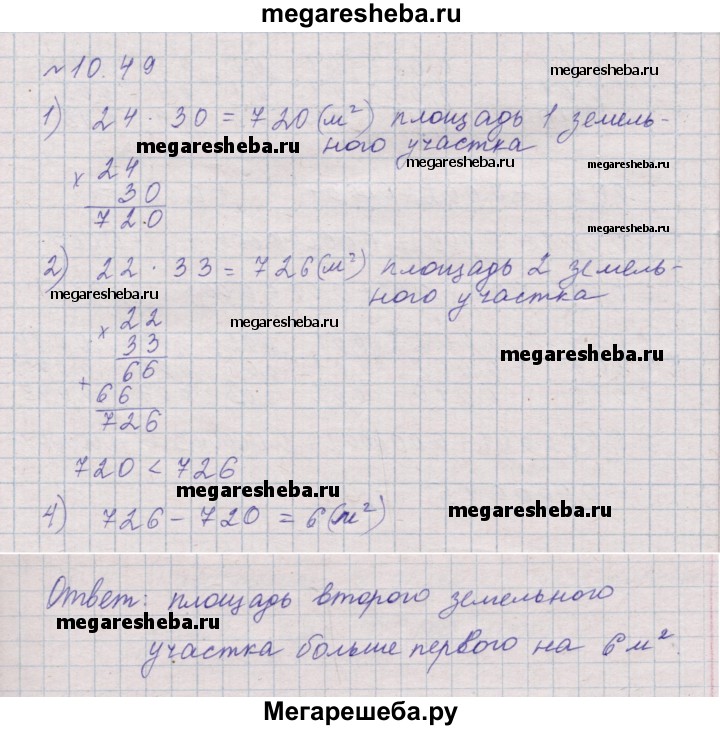 megaresheba.ru
№10.49
megaresheba.ru
1) 24 · 30 = 720 (м²) площадь 1 земель-
ного участка
megaresheba.ru
megaresheba.ru
megaresheba.ru
× 24
30
72.0
megaresheba.ru
2) 22 · 33 = 726 (м²) площадь 2 земель-
ного участка
megaresheba.ru
× 22
megaresheba.ru
33
megaresheba.ru
66
+
66
726
720 < 726
megaresheba.ru
4) 726 - 720 = 6 (м²)
megaresheba.ru
Ответ: площадь второго земельного
megaresheba.ru
участка больше первого на 6 м².
Мегарешеба.ру